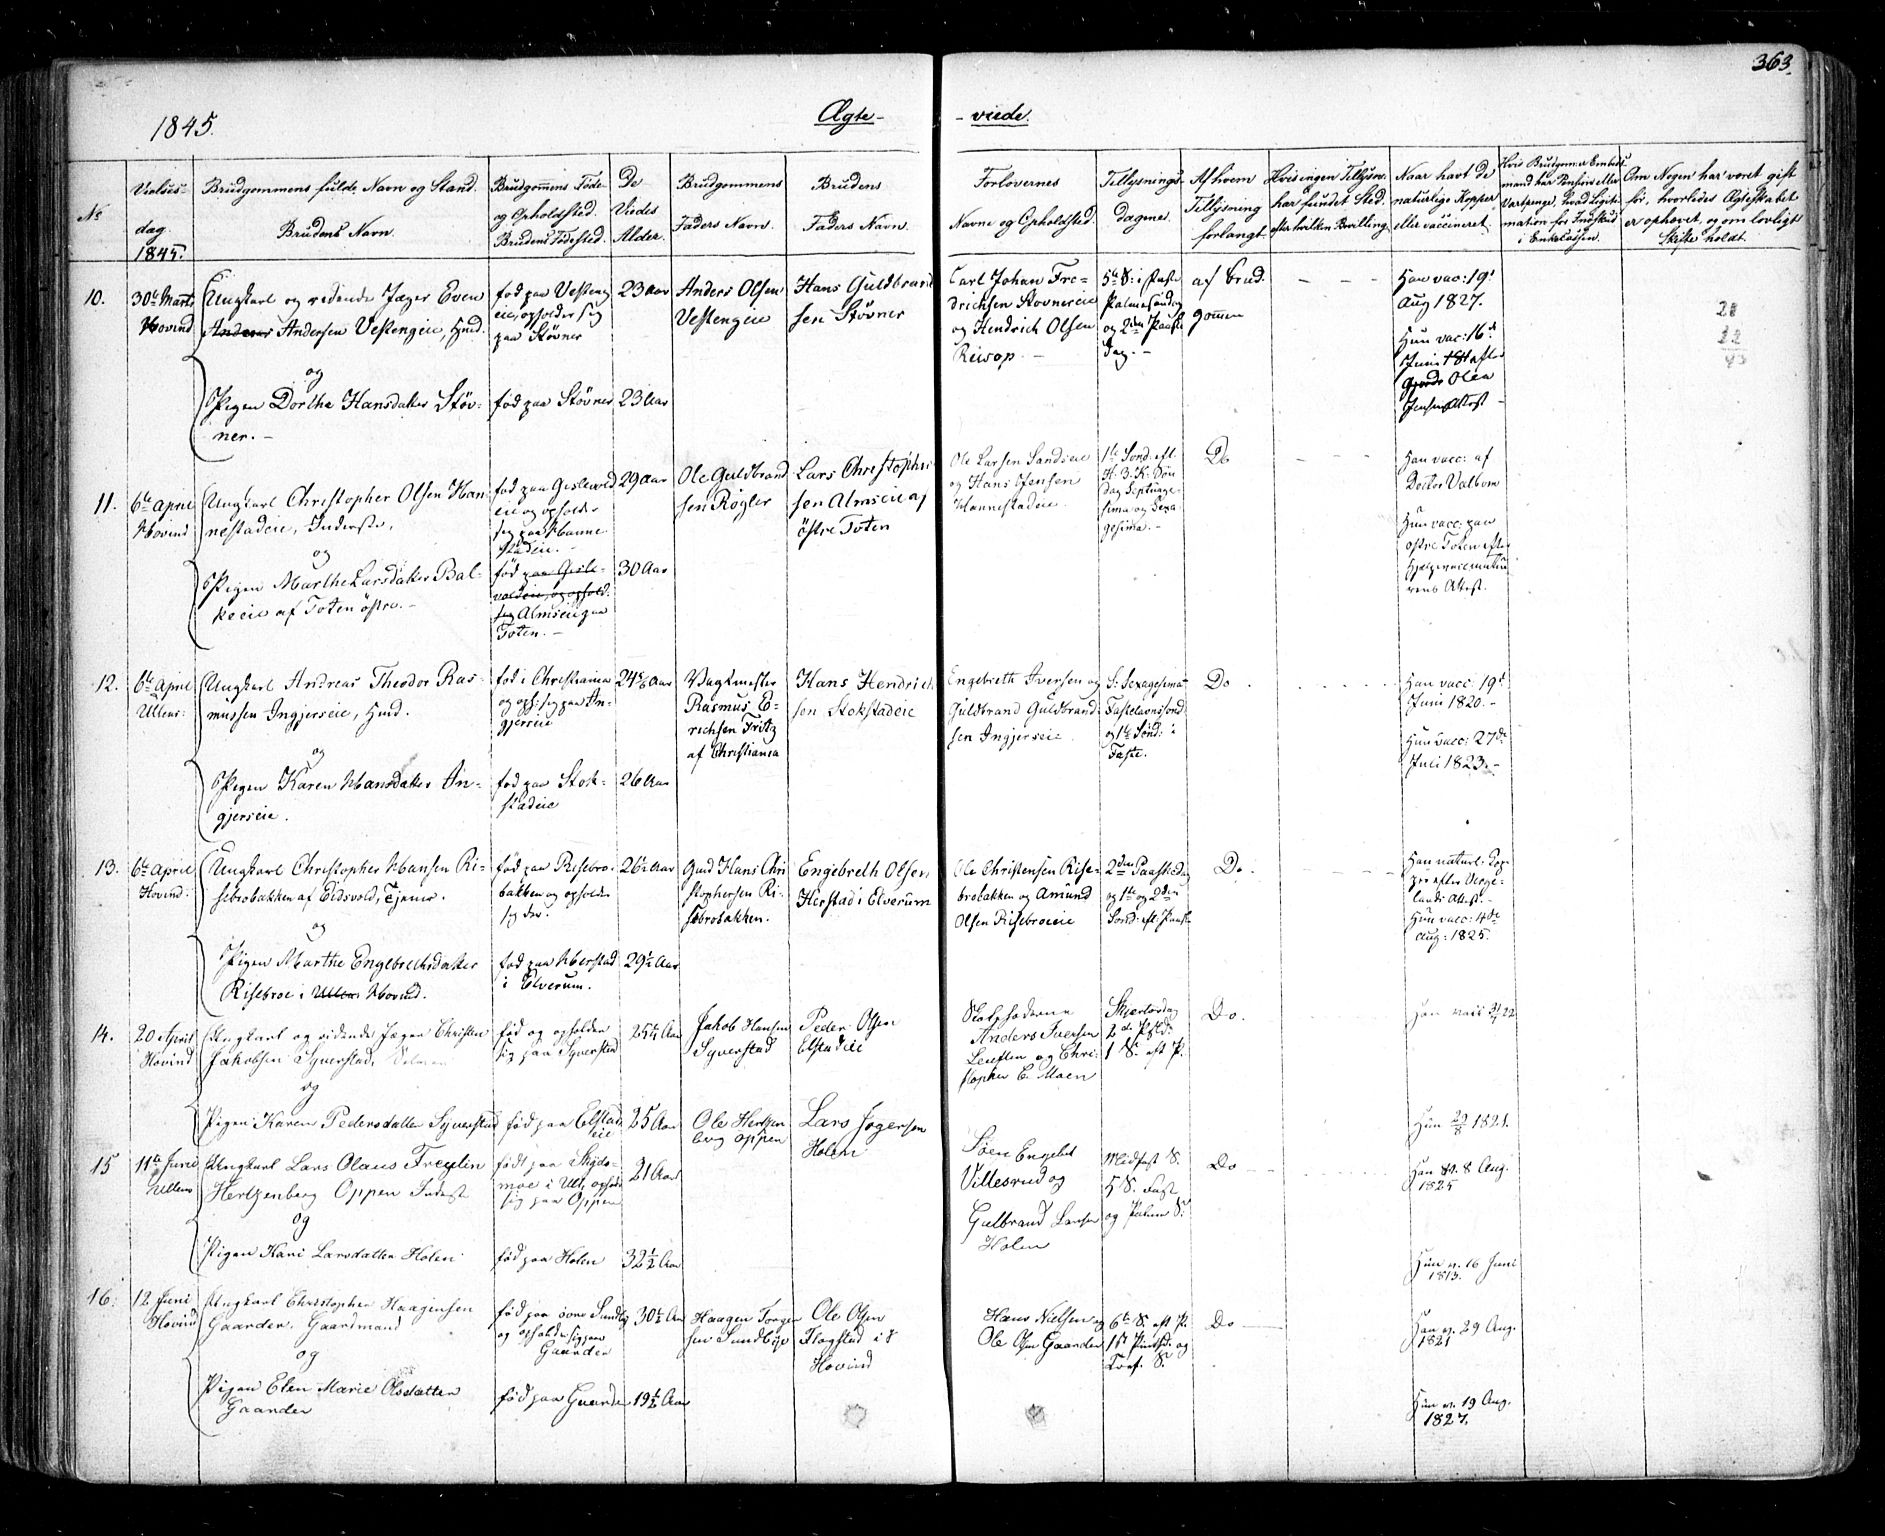 363.
1845.
Ægte-
- viede.
No
Vielses-
dag.
1845.
Brudgommens fulde Navn og Stand.
Brudens Navn.
Brudgommens Føde-
og Opholdsted.
Brudens Fødested.
De
Viedes
Alder.
Brudgommens
Faders Navn.
Brudens
Faders Navn.
Forlovernes
Navne og Opholdsted.
Tillysnings-
dagene.
Af hvem
Tillysning
forlangt.
Hvis ingen Tillysn.
har fundet Sted.
efter hvilken Bevilling.
Naar havt de
naturlige Kopper
eller vaccineret.
Hvis Brudgom. er Embeds-
mand har Pension eller
Vartpenge, hvad Legiti-
mation for Indskud
i Enkekassen.
Om Nogen har været gift
før, hvorledes Ægteskabet
er ophævet, og om lovligt
Skifte holdt.
10.
30te Marts
Hovind
Ungkarl og ridende Jæger Even
Anderes Andersen Vestengeie, Hmd.
og
Pigen Dorthe Hansdatter Støv-
ner. -
fød paa Vesteng
eie, opholder sig
paa Støvner
fød paa Støvner
23 Aar
23 Aar
Anders Olsen
Vestengeie
Hans Guldbrand
sen Støvner
Carl Johan Fre-
drichsen Støvnereie
og Hendrich Olsen
Riisop. -
5te S: i Faste
Palmesøndag
og 2den Paaske
dag. -
af Brud
gommen
Han vac: 19d
Aug 1827.
Hun vac: 16de
Juni efter
Olea
Jensens Attest -
28
22
11.
6te April
Hovind
Ungkarl Christopher Olsen Han
nestadeie, Inderste,
og
Pigen Marthe Larsdatter Bal-
keeie af Toten østre. -
fød paa Gislevold
eie og opholder
sig paa Hanne
stadeie. -
fød paa Gisle-
voldeie, og ophold.
sig Almseie paa
Toten. -
29 Aar
30 Aar
Ole Guldbrand
sen Røgler
Lars Christopher
sen Almseie af
østre Toten
Ole Larsen Sandseie
og Hans Jensen
Hannestadeie.
1te Sønd. eft.
H. 3. K. Søn
dag Septuage-
sima og Sexa-
gesima. -
Do
Han vacc: af
Doctor Valbom
Hun vacc: paa
østre Toten efter
Hjelpevaccinateu
rens Attest.
12.
6te April
Ullens:
Ungkarl Andreas Theodor Ras-
mussen Ingjerseie, Hmd.
og
Pigen Karen Hansdatter In-
gjerseie.
fød i Christiania
og oph: sig paa In-
gjerseie
fød paa Stok-
stadeie
26 Aar
Vagtmester
Rasmus E-
richsen Fritz
af Christiania
Hans Hendrich
sen Stokstadeie
Engebreth Iversen og
Guldbrand Guldbrand-
sen Ingjerseie
S: Sexagesima
Fastelavnssønd
og 1te Sønd: i
Faste.
Do
Han vacc: 19d
Juni 1820. -
Hun vacc: 27de
Juli 1823. -
13.
6te April
Hovind:
Ungkarl Christopher Hansen Ri-
sebrobakken af Eidsvold, Tjener.
og
Pigen Marthe Engebrethsdatter
Risebroe i Ullens Hovind.
fød paa Risebro-
bakken og opholder
sig der.
fød paa Herstad
i Elverum.
26½ Aar
29½ Aar
Gmd Hans Chri
stophersen Ri-
sebrobakken.
Engebreth Olsen
Herstad i Elverum
Ole Christensen Rise-
brobakken og Amund
Olsen Risebroeie
2den Paaskedag
og 1ste og 2den
Sønd: eft. Paaske
Do
Han naturl: Kop-
per efter Verge-
lands Attest. -
Hun vacc: 4de
Aug: 1825.
14.
20 April
Hovind
Ungkarl og ridende Jæger Christen
Jakobsen Syverstad,
og
Pigen Karen Pedersdatter Syverstad
fød og opholder
sig paa Syverstad
fød paa Elstad
eie
25¼ Aar
25 Aar
Jakob Hansen
Syverstad
Peder Olsen
Elstadeie
Anders Iversen
og Chri-
stopher E. Moen
Skjertorsdag
2den Pskd:
1 S. eft P.
Do.
Han vacc
Hun 29/8 1821.
15
11te Juni
Ullens
Ungkarl Lars Olaus Freylin
Hertzenberg Oppen Inderst
og
Pigen Kari Larsdatter Holen
født paa Skjøs-
moe i Ull. ophold
sig paa Oppen
fød paa Holen
21 Aar
32½ Aar
Ole Hertzen
berg Oppen
Lars Jogersen
Holen
Søen Engebret
Villesrud og
Gulbrand Larsen
Holen
Midfast S.
5 S. Fast
og Palme S.
Do
Han v. 8 Aug.
1825
Hun v. 16 Juni
1813.
16.
12 Juni
Hovind
Ungkarl Christopher Haagensen
Gaarder. Gaardmand
og
Pigen Elen Marie Olsdatter
Gaarder
fød paa øvre Sundby
og opholder sig paa
Gaarder
fød paa Gaarder
30½ Aar
19½ Aar
Haagen Torger
sen Sundbye
Ole Olsen
Flagstad i
Hovind
Hans Nielsen og
Ole Olsen Gaarder
6te S. eft P.
1st Pintsd. og
Tref. S.
Do
Han v. 29 Aug.
1821
Hun v. 19 Aug.
1827.